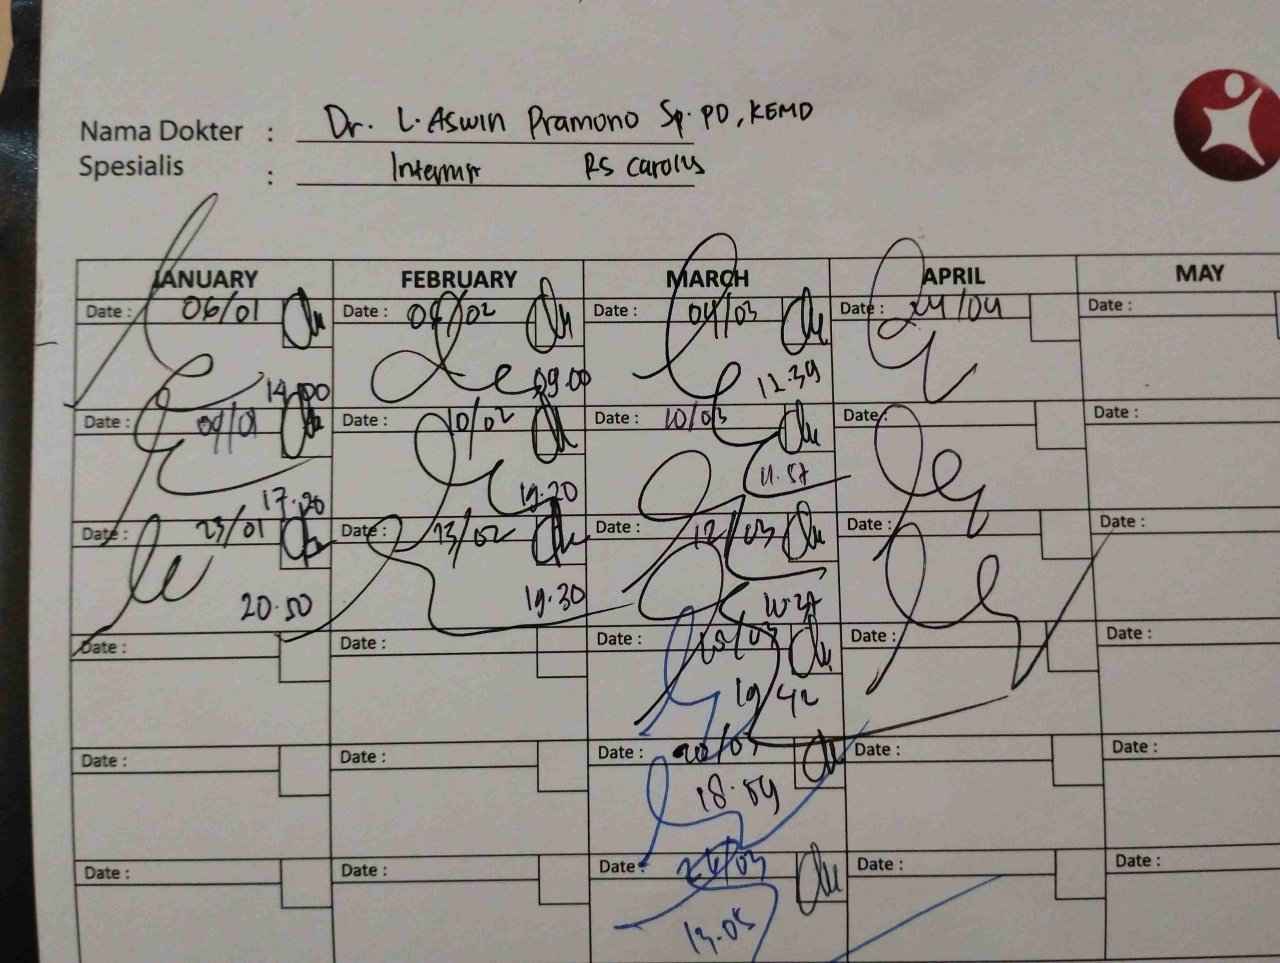 Nama Dokter : Dr. L. Aswin Pramono Sp. PD, KEMD
Spesialis : RS Carolus
JANUARY FEBRUARY MARCH APRIL MAY
Date : 06/01 Date : Date : 04/03 Date : 24/04 Date :
14.00 09.00 11.39
Date : 09/01 Date : 10/02 Date : 10/03 Date : Date :
17.20 19.20 11.57
Date : 23/01 Date : 23/02 Date : 12/03 Date : Date :
20.50 19.30
Date : Date : Date : Date : Date :
19 42
Date : Date : Date : 20/03 Date : Date :
18.59
Date : Date : Date : Date : Date :
13.05